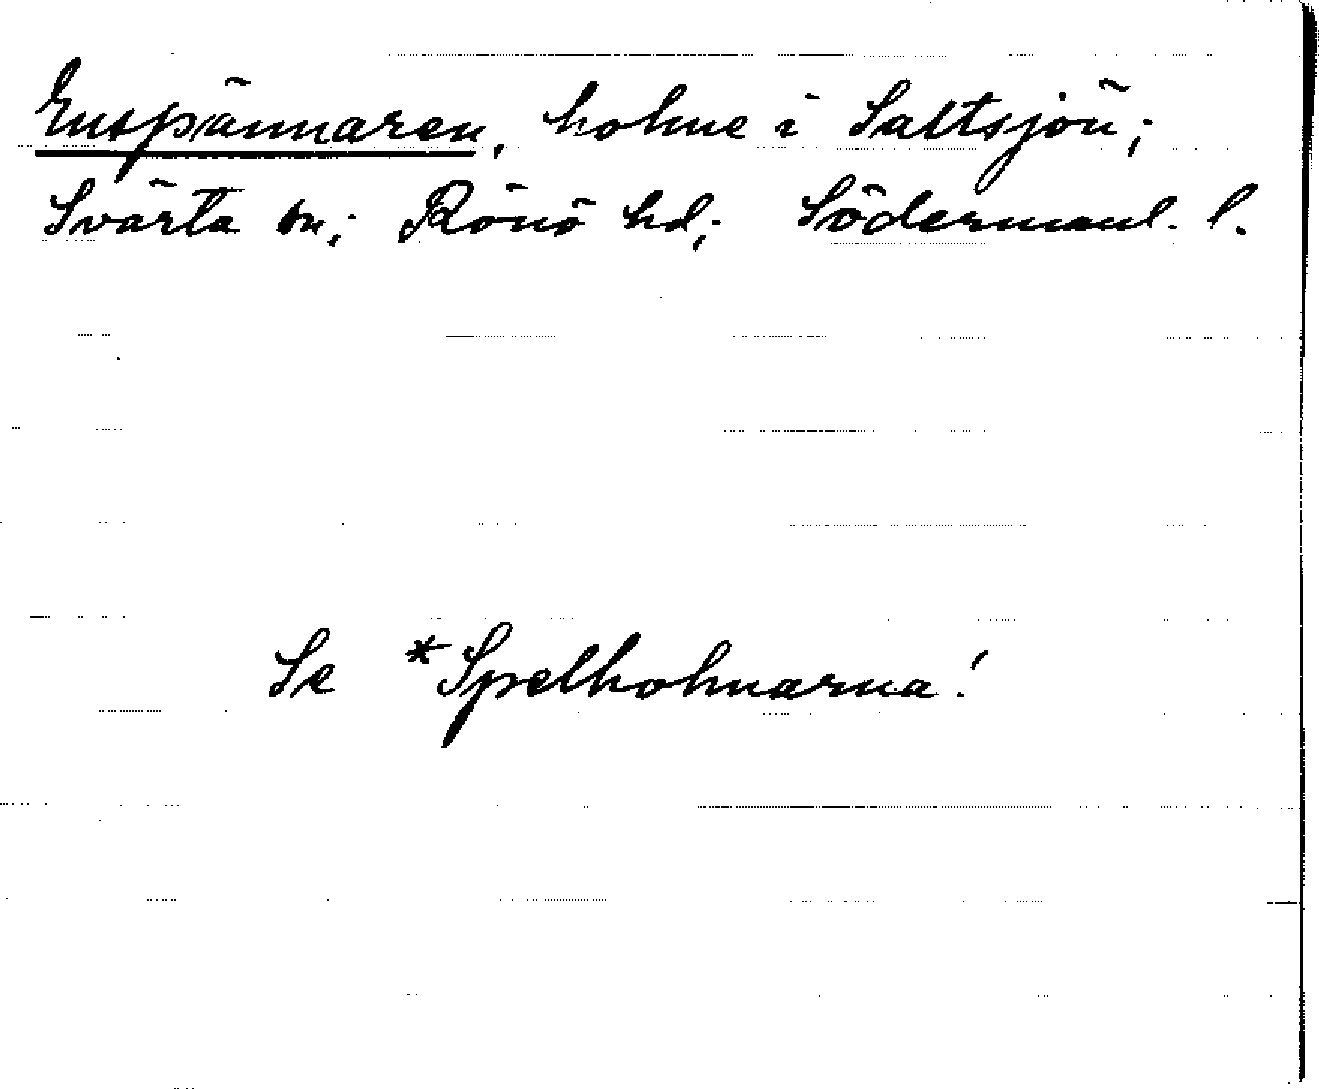 Enspännaren, holme i Saltsjön;
Svärta sn; Rönö hd; Södermanl. l.
Se *Spelholmarna!